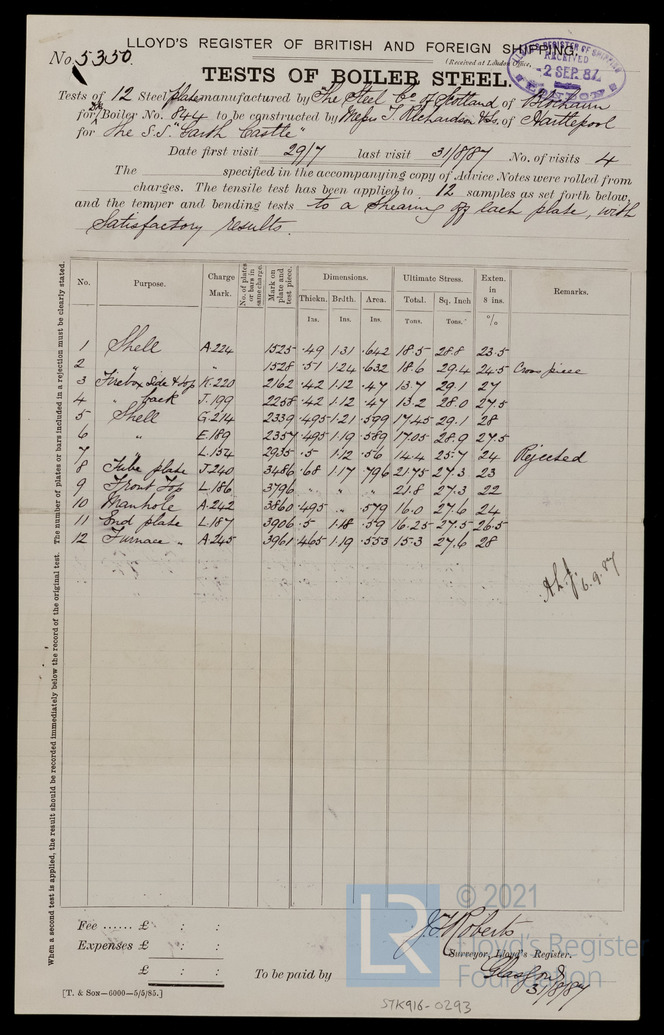 LLOYD'S REGISTER OF BRITISH AND FOREIGN SHIPPING.
No. 5350.
(Received at London Office,
LLOYD'S REGISTER OF SHIPPING
RECEIVED
2 SEP. 87
TESTS OF BOILER STEEL.
Tests of 12 Steel plates manufactured by The Steel Co of Scotland of Blochairn
for Boiler No. 844 to be constructed by Messrs T. Richardson & Sons of Hartlepool
for the S.S. "Garth Castle"
Date first visit 29/7 last visit 31/8/87 No. of visits 4
The specified in the accompanying copy of Advice Notes were rolled from
charges. The tensile test has been applied to 12 samples as set forth below,
and the temper and bending tests to a Shearing off each plate, with
Satisfactory results.
No. Purpose. Charge Mark. No. of plates or bars in same charge. Mark on plate and test piece. Dimensions. Ultimate Stress. Exten. in 8 ins. Remarks.
Thickn. Brdth. Area. Total. Sq. Inch
Ins. Ins. Ins. Tons. Tons. %
1 Shell A.224 1525 .49 1.31 .642 18.5 28.8 23.5
2 " " 1528 .51 1.24 .632 18.6 29.4 24.5 Cross piece
3 Firebox Side & top K.220 2162 .42 1.12 .47 13.7 29.1 27
4 " back J.199 2258 .42 1.12 .47 13.2 28.0 27.5
5 Shell G.214 2339 .495 1.21 .599 17.45 29.1 28
6 " E.189 2357 .495 1.19 .589 17.05 28.9 27.5
7 L.154 2935 .5 1.12 .56 14.4 25.7 24 Rejected
8 Tube plate J.240 3486 .68 1.17 .796 21.75 27.3 23
9 Front Top L.186 3796 " " " 21.8 27.3 22
10 Manhole A.242 3860 .495 " .579 16.0 27.6 24
11 End plate L.187 3906 .5 1.18 .59 16.25 27.5 26.5
12 Furnace " A.245 3961 .465 1.19 .553 15.3 27.6 28
6.9.87
When a second test is applied, the result should be recorded immediately below the record of the original test. The number of plates or bars included in a rejection must be clearly stated.
Fee ...... £ : :
Expenses £ : :
£ : :
To be paid by
J.T. Roberts
Surveyor, Lloyd's Register.
Glasgow
31/8/87
[T. & Son—6000—5/5/85.]
STK916-0293
LR
© 2021
Lloyd's Register
Foundation